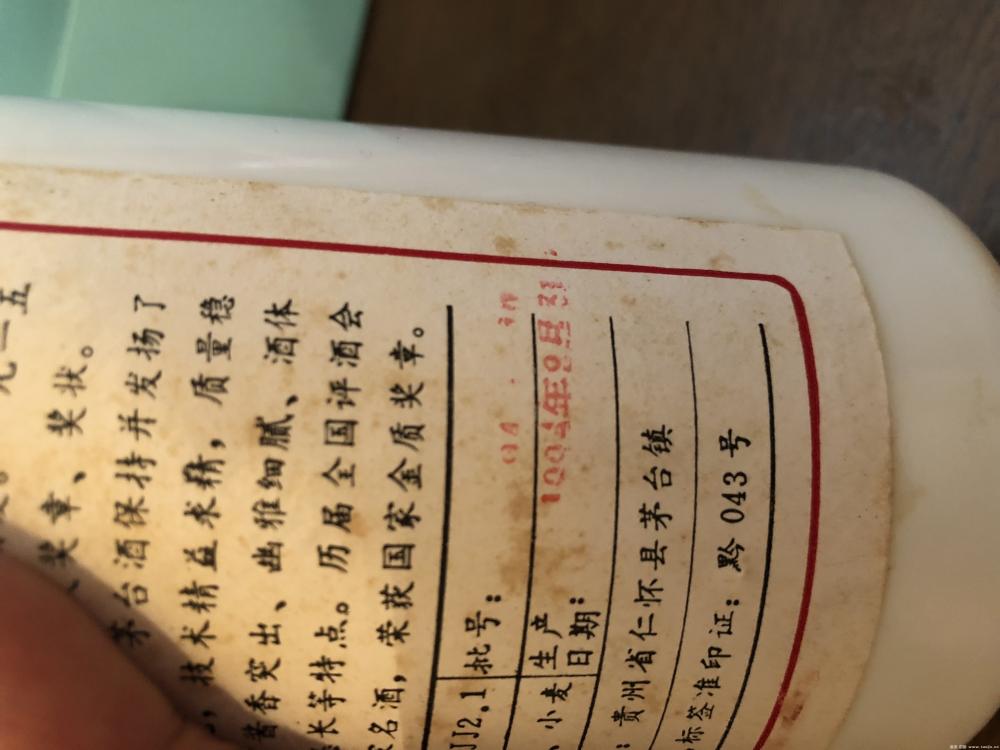 五
奖章、奖状。
茅台酒保持并发扬了
技术精益求精，质量稳
酱香突出、幽雅细腻、酒体
长等特点。历届全国评酒会
名酒，荣获国家金质奖章。
JJ2.1 批号：
、小麦 生产日期： 1994年
：贵州省仁怀县茅台镇
标签准印证：黔043号